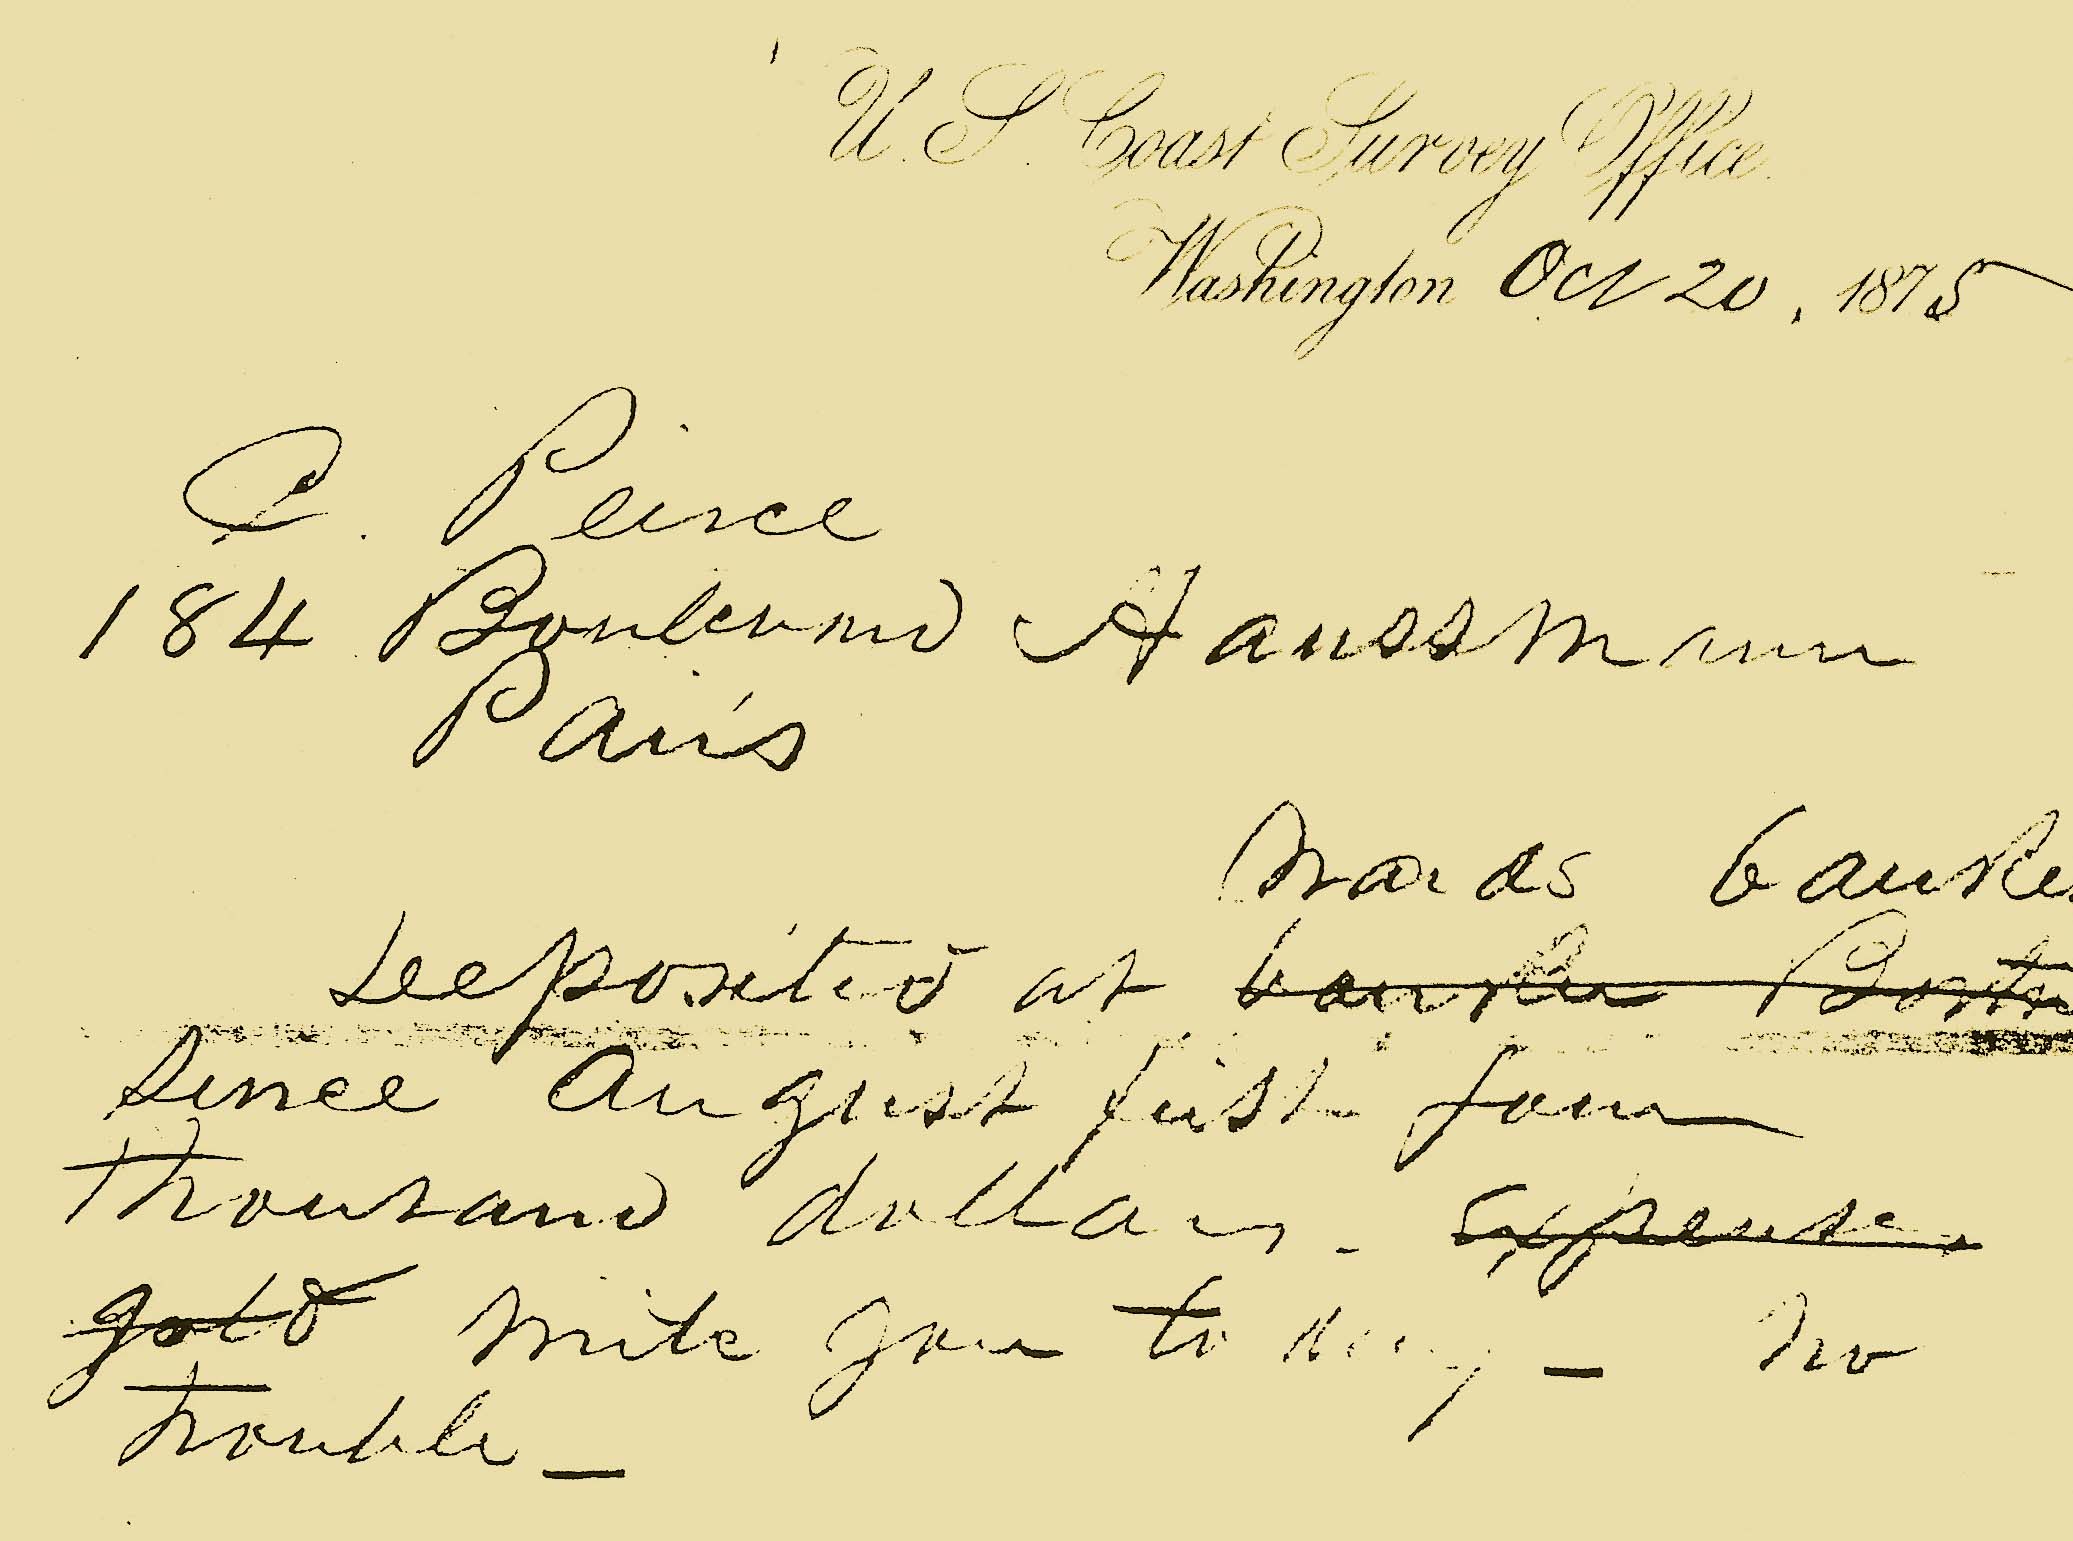 U. S. Coast Survey Office.
Washington Oct 20, 1875
C. Peirce
184 Boulevard Haussmann
Paris
Wards banker
Deposited at banker Boston
since August first four
thousand dollars. Expense
gold Write you to day – No
trouble –